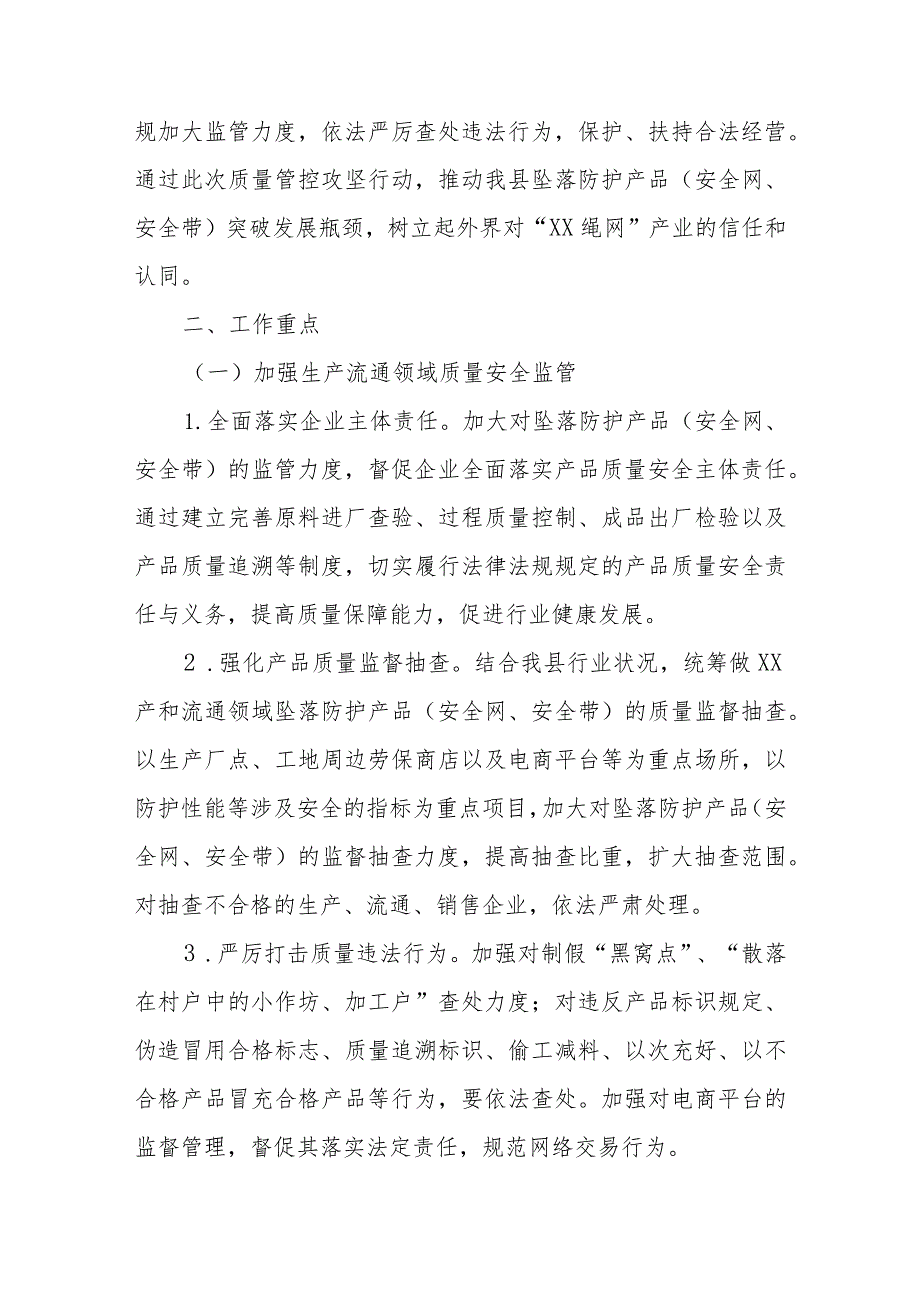 规加大监管力度，依法严厉查处违法行为，保护、扶持合法经营。
通过此次质量管控攻坚行动，推动我县坠落防护产品（安全网、
安全带）突破发展瓶颈，树立起外界对“XX绳网”产业的信任和
认同。
二、工作重点
（一）加强生产流通领域质量安全监管
1.全面落实企业主体责任。加大对坠落防护产品（安全网、
安全带）的监管力度，督促企业全面落实产品质量安全主体责任。
通过建立完善原料进厂查验、过程质量控制、成品出厂检验以及
产品质量追溯等制度，切实履行法律法规规定的产品质量安全责
任与义务，提高质量保障能力，促进行业健康发展。
2.强化产品质量监督抽查。结合我县行业状况，统筹做XX
产和流通领域坠落防护产品（安全网、安全带）的质量监督抽查。
以生产厂点、工地周边劳保商店以及电商平台等为重点场所，以
防护性能等涉及安全的指标为重点项目,加大对坠落防护产品(安
全网、安全带）的监督抽查力度，提高抽查比重，扩大抽查范围。
对抽查不合格的生产、流通、销售企业，依法严肃处理。
3.严厉打击质量违法行为。加强对制假“黑窝点”、“散落
在村户中的小作坊、加工户”查处力度；对违反产品标识规定、
伪造冒用合格标志、质量追溯标识、偷工减料、以次充好、以不
合格产品冒充合格产品等行为，要依法查处。加强对电商平台的
监督管理，督促其落实法定责任，规范网络交易行为。